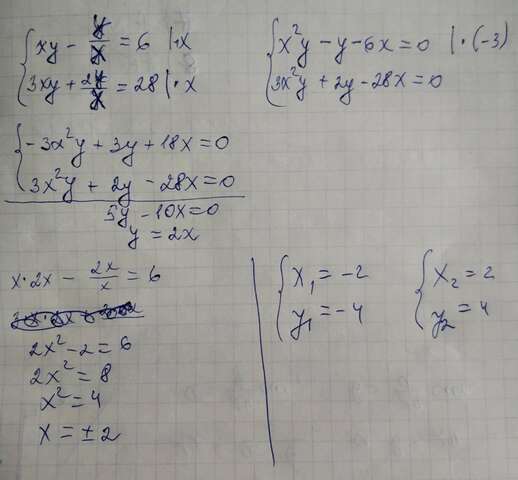 xy - y/x = 6 | · x
3xy + 2y/x = 28 | · x
x²y - y - 6x = 0 | · (-3)
3x²y + 2y - 28x = 0
-3x²y + 3y + 18x = 0
3x²y + 2y - 28x = 0
5y - 10x = 0
y = 2x
x · 2x - 2x/x = 6
2x² - 2 = 6
2x² = 8
x² = 4
x = ± 2
x₁ = -2
y₁ = -4
x₂ = 2
y₂ = 4